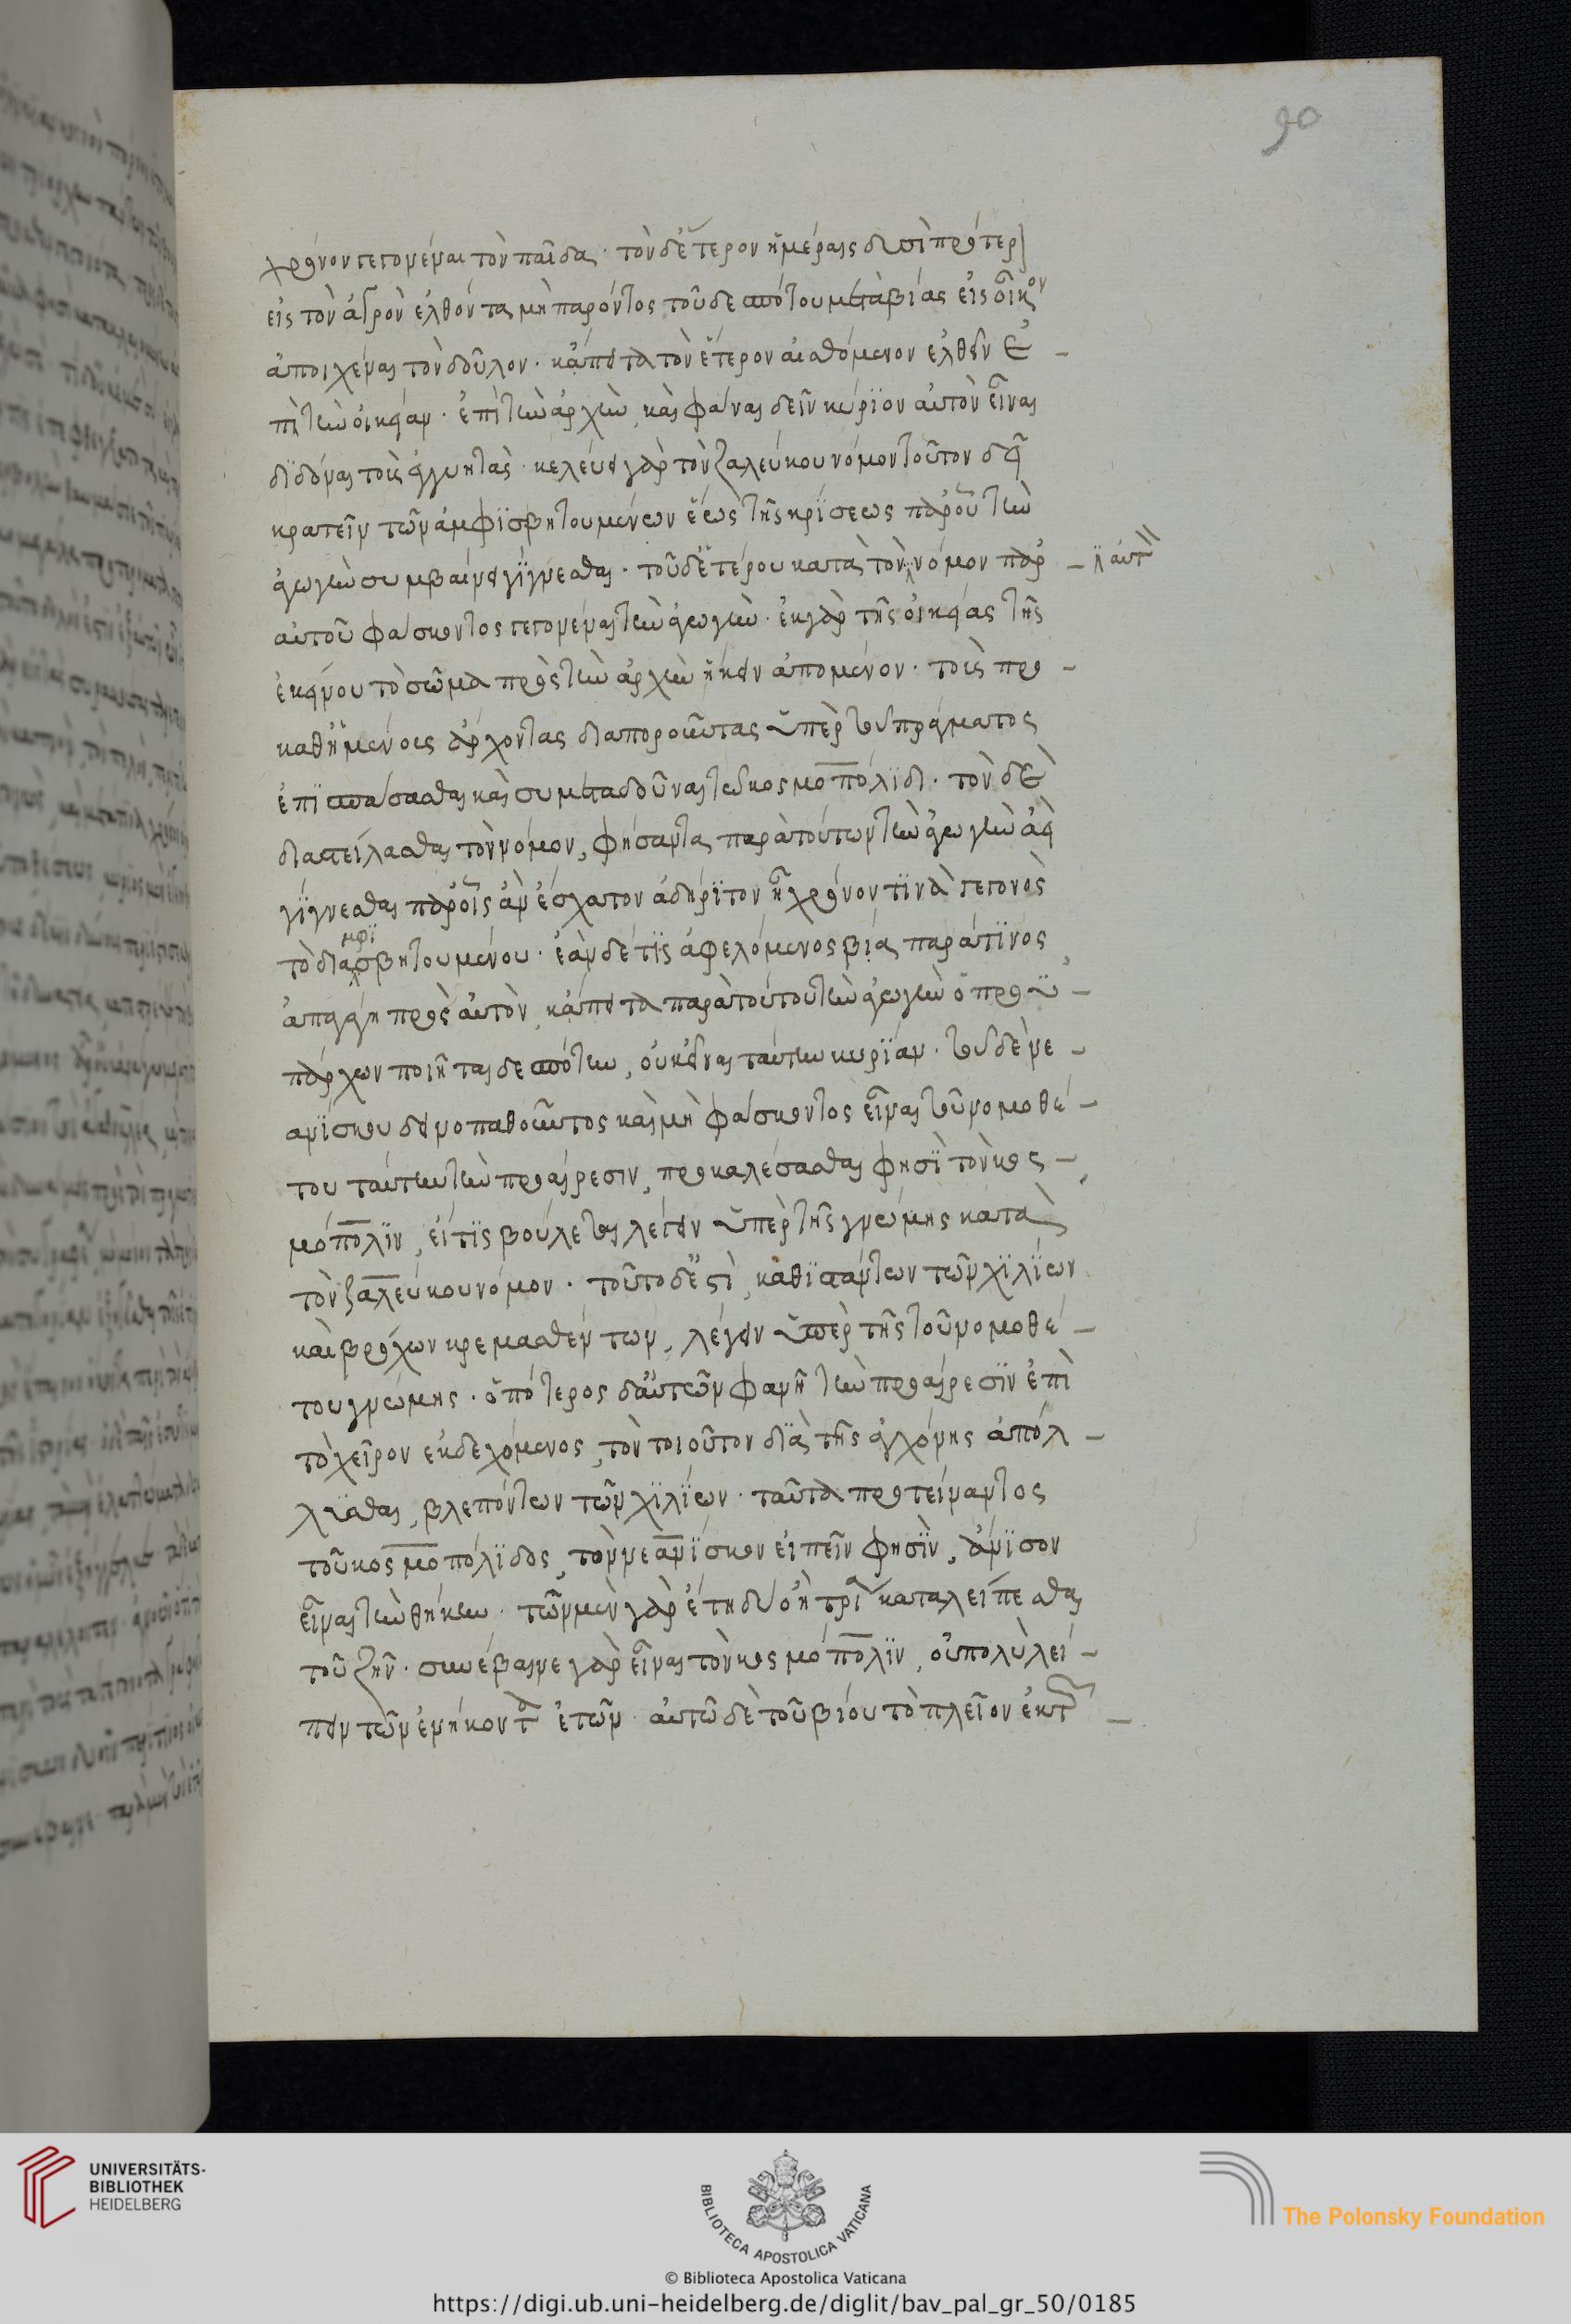 90
χρόνον γεγονέναι τὸν παῖδα · τὸν δ' ἕτερον ἡμέραις δυσὶ πρότερον
εἰς τὸν ἀγρὸν ἐλθόντα μὴ παρόντος τοῦ δεσπότου μετὰ βίας εἰς οἶκον
ἀπαγηοχέναι τὸν δοῦλον · κἄπειτα τὸν ἕτερον αἰσθόμενον ἐλθεῖν ἐ-
πὶ τὴν οἰκίαν · ἐπὶ τὴν ἀρχὴν, καὶ φάναι δεῖν κύριον αὐτὸν εἶναι
διδόναι τοὺς ἐγγυητὰς · κελεύει γὰρ τὸν ζαλεύκου νόμον τοῦτον δεῖ
κρατεῖν τῶν ἀμφισβητουμένων ἕως τῆς κρίσεως παρ' οὗ τὴν
ἀγωγὴν συμβαίνει γίγνεσθαι · τοῦ δ' ἑτέρου κατὰ τὸν νόμον παρ' - αὐτὸν
αὐτοῦ φάσκοντος γεγονέναι τὴν ἀγωγὴν · ἐκ γὰρ τῆς οἰκίας τῆς
ἐκείνου τὸ σῶμα πρὸς τὴν ἀρχὴν ἥκειν ἀπομένον · τοὺς προ-
καθημένους ἄρχοντας διαποροῦντας ὑπὲρ τοῦ πράγματος
ἐπισπάσασθαι καὶ συμμεταδοῦναι τῷ κοσμοπόλιδι · τὸν δὲ
διαστείλασθαι τὸν νόμον, φήσαντα παρὰ τούτων τὴν ἀγωγὴν ἀεὶ
γίγνεσθαι παρ' οἷς ἂν ἔσχατον ἀδήριτον ᾖ χρόνον τινὰ γεγονὸς
τὸ διαμφισβητουμένου · ἐὰν δέ τις ἀφελόμενος βίᾳ παρά τινος,
ἀπαγάγῃ πρὸς αὐτὸν, κἄπειτα παρὰ τούτου τὴν ἀγωγὴν ὁ προϋ-
πάρχων ποιῆται δεσπότην, οὐκ εἶναι ταύτην κυρίαν · τοῦ δὲ νε-
ανίσκου δεινοπαθοῦντος καὶ μὴ φάσκοντος εἶναι τοῦ νομοθέ-
του ταύτην τὴν προαίρεσιν, προκαλέσασθαι φησὶ τὸν κοσ-
μόπολιν, εἴ τις βούλεται λέγειν ὑπὲρ τῆς γνώμης κατὰ
τὸν ζαλεύκου νόμον · τοῦτο δ' ἐστὶ, καθισάντων τῶν χιλίων
καὶ βρόχων κρεμασθέντων, λέγειν ὑπὲρ τῆς τοῦ νομοθέ-
του γνώμης · ὁπότερος δ' αὐτῶν φανῇ τὴν προαίρεσιν ἐπὶ
τὸ χεῖρον ἐκδεχόμενος, τὸν τοιοῦτον διὰ τῆς ἀγχόνης ἀπόλ-
λυσθαι, βλεπόντων τῶν χιλίων · ταῦτα προτείναντος
τοῦ κοσμοπόλιδος, τὸν νεανίσκον εἰπεῖν φησὶν, ἄνισον
εἶναι τὴν συνθήκην · τῶν μὲν γὰρ ἔτη δύο ἢ τρία καταλείπεσθαι
τοῦ ζῆν · συνέβαινε γὰρ εἶναι τὸν κοσμόπολιν, οὐ πολὺ λεί-
πειν τῶν ἐνενήκοντα ἐτῶν · αὐτῶ δὲ τοῦ βίου τὸ πλεῖον ἐκ τοῦ -
UNIVERSITÄTS-
BIBLIOTHEK
HEIDELBERG
BIBLIOTECA APOSTOLICA VATICANA
The Polonsky Foundation
© Biblioteca Apostolica Vaticana
https://digi.ub.uni-heidelberg.de/diglit/bav_pal_gr_50/0185